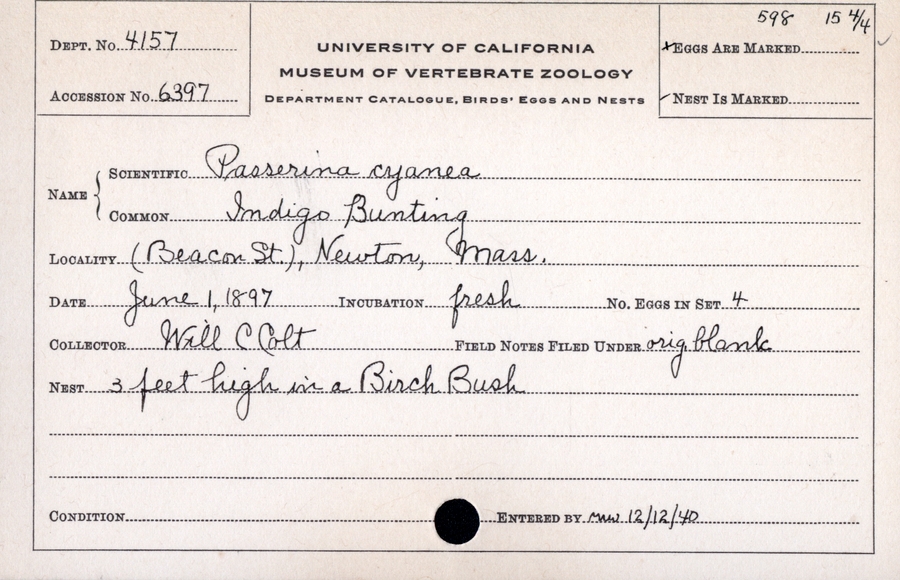 598 15 4/4
DEPT. NO. 4157
UNIVERSITY OF CALIFORNIA
xEGGS ARE MARKED
MUSEUM OF VERTEBRATE ZOOLOGY
ACCESSION NO. 6397
DEPARTMENT CATALOGUE, BIRDS' EGGS AND NESTS
✓NEST IS MARKED
NAME { SCIENTIFIC Passerina cyanea
COMMON Indigo Bunting
LOCALITY (Beacon St.), Newton, Mass.
DATE June 1, 1897 INCUBATION fresh NO. EGGS IN SET 4
COLLECTOR Will C Colt FIELD NOTES FILED UNDER orig blank
NEST 3 feet high in a Birch Bush
CONDITION ENTERED BY mw 12/12/40